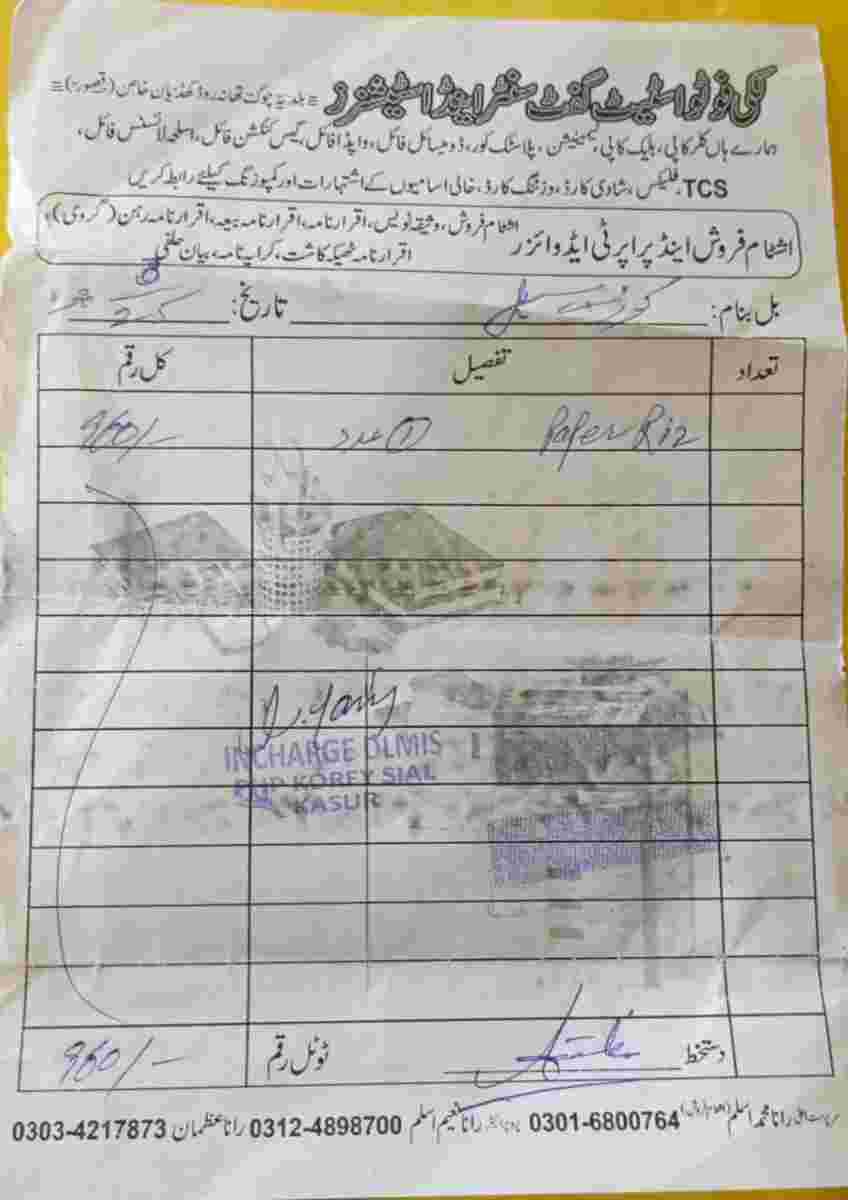 لکی فوٹو اسٹیٹ گفٹ سنٹر اینڈ اسٹیشنرز = بلدیہ چوک تھانہ روڈ کھڈیاں خاص (قصور) =
ہمارے ہاں کلر کاپی، بلیک کاپی، لیمینیشن، پلاسٹک کور، ڈومیسائل فائل، واپڈا فائل، گیس کنکشن فائل، اسلحہ لائسنس فائل،
TCS، فلیکس، شادی کارڈ، وزٹنگ کارڈ، خالی اسامیوں کے اشتہارات اور کمپوزنگ کیلئے رابطہ کریں
اشٹام فروش اینڈ پراپرٹی ایڈوائزر
اشٹام فروش، وثیقہ نویس، اقرارنامہ، اقرارنامہ بیعہ، اقرارنامہ رہن (گروی)،
اقرارنامہ ٹھیکہ کاشت، کرایہ نامہ، بیان حلفی
بل بنام: تاریخ:
تعداد تفصیل کل رقم
Paper Rim ① عدد 960/-
INCHARGE DLMIS
KOREY SIAL
KASUR
دستخط ٹوٹل رقم 960/-
رانا محمد اسلم 0301-6800764 رانا نعیم اسلم 0312-4898700 رانا عظمان 0303-4217873